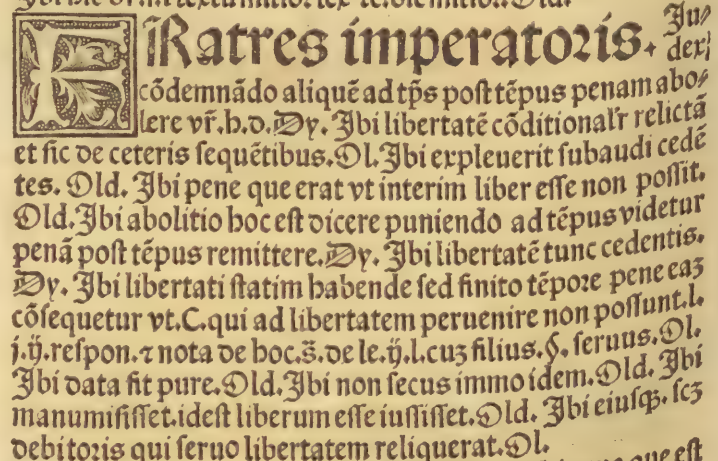 FRatres imperatoris. Iu⸗
dex
cōdemnādo aliquē ad tp̄s poſt tēpus penam abo⸗
lere vr̄.h.d. Dy. Ibi libertatē cōditional'r relictā
et ſic de ceteris ſequētibus. Ol. Ibi expleuerit ſubaudi cedē
tes. Old. Ibi pene que erat vt interim liber eſſe non poſſit.
Old. Ibi abolitio hoc eſt dicere puniendo ad tēpus videtur
penā poſt tēpus remittere. Dy. Ibi libertatē tunc cedentis.
Dy. Ibi libertati ſtatim habende ſed finito tēpore pene eaꝫ
cōſequetur vt.C.qui ad libertatem peruenire non poſſunt.l.
j.ij.reſpon.⁊ nota de hoc.s̄.de le.ij.l.cuꝫ filius.§. ſeruus. Ol.
Ibi data ſit pure. Old. Ibi non ſecus immo idem. Old. Ibi
manumiſiſſet.ideſt liberum eſſe iuſſiſſet. Old. Ibi eiuſqꝫ. ſcꝫ
debitoris qui ſeruo libertatem reliquerat. Ol.
que eſt